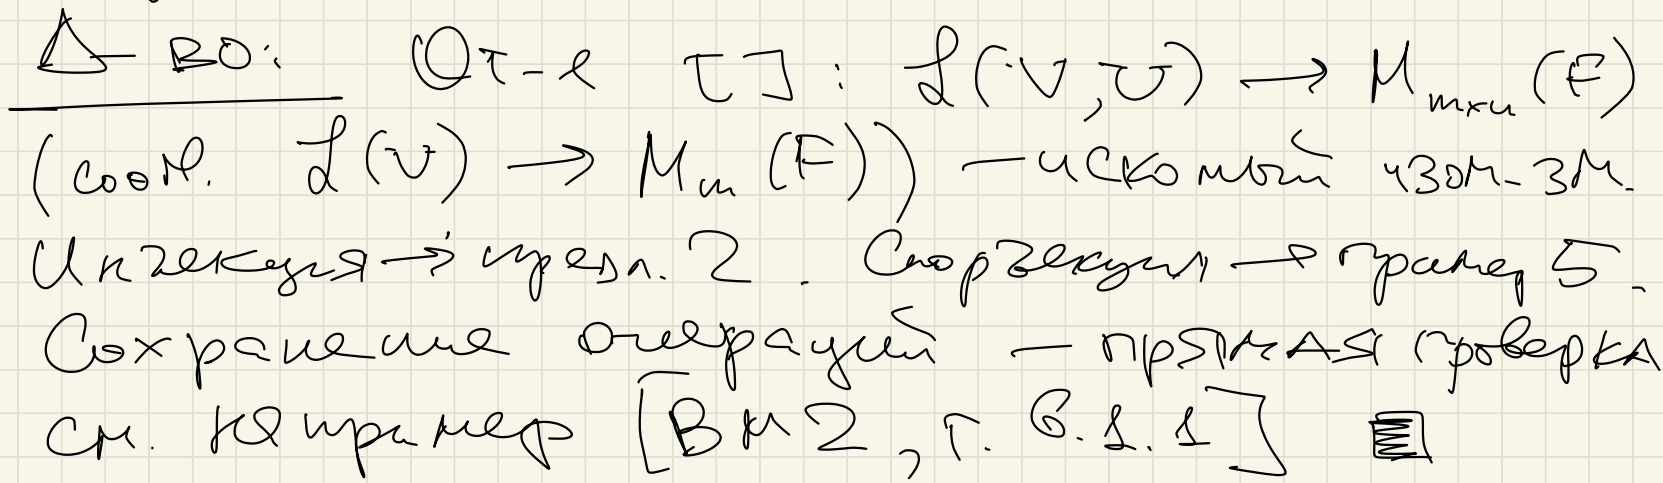 Δ-во: От-е []: ℒ(V,U) → M_{m×n}(F)
(соотв. ℒ(V) → M_n(F)) — искомый изом-зм.
Инъекция → предл. 2. Сюръекция → пример 5.
Сохранение операций — прямая проверка
см. например [Вм2, т. 6.1.1]